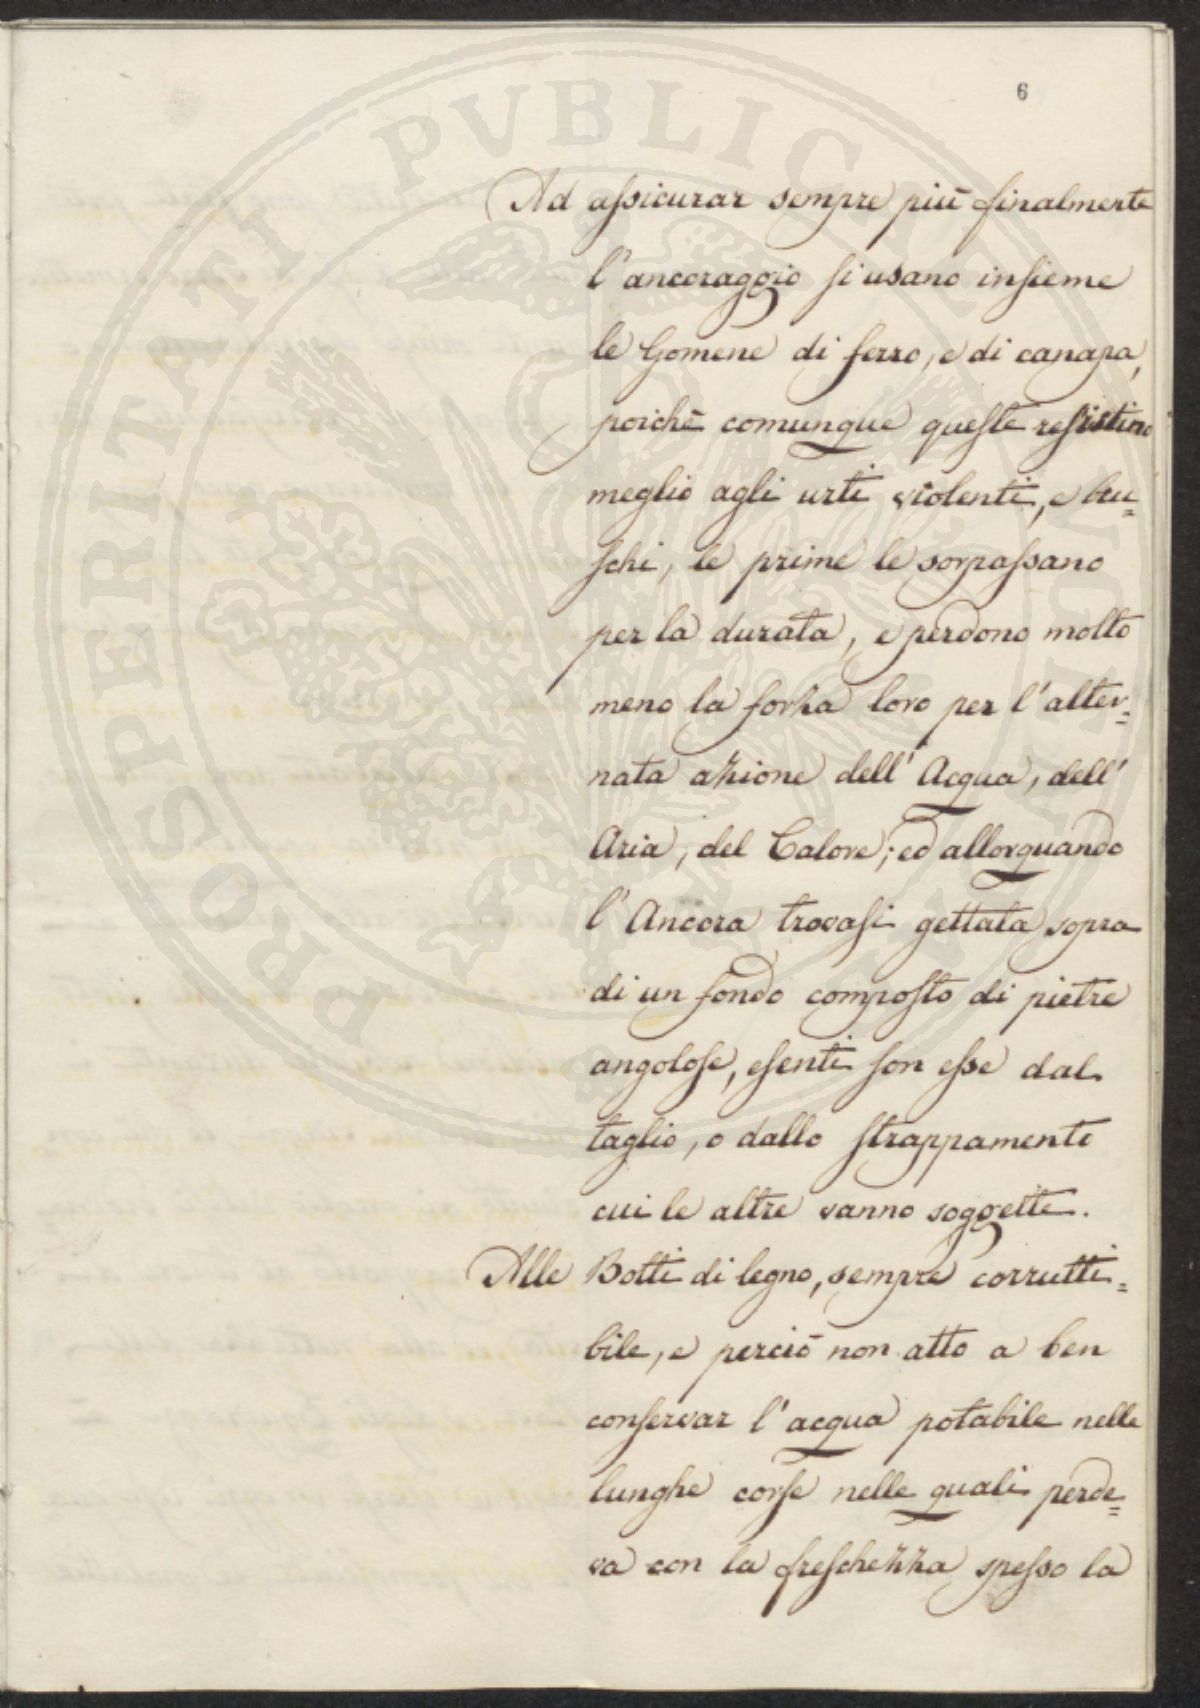 6
PROSPERITATI PVBLICAE AVGENDAE
Ad assicurar sempre più finalmente
l'ancoraggio si usano insieme
le Gomene di ferro, e di canapa,
poichè comunque queste resistino
meglio agli urti violenti, e bru=
schi, le prime le sorpassano
per la durata, e perdono molto
meno la forza loro per l'alter=
nata azione dell'Acqua, dell'
Aria, del Calore; ed allorquando
l'Ancora trovasi gettata sopra
di un fondo composto di pietre
angolose, esenti son esse dal
taglio, o dallo strappamento
cui le altre vanno soggette.
Alle Botti di legno, sempre corrutti=
bile, e perciò non atto a ben
conservar l'acqua potabile nelle
lunghe corse nelle quali perde=
va con la freschezza spesso la